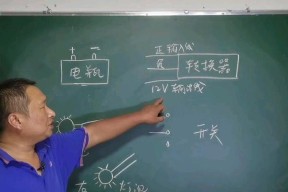 + −
电瓶
正输入线
转换器
12V输出线
开关